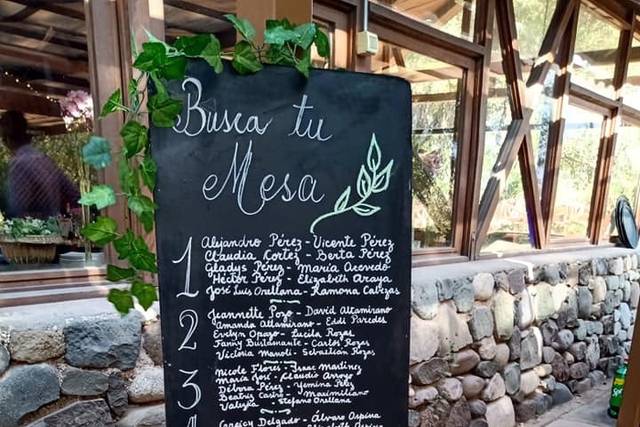 Busca tu
Mesa
1
Alejandro Pérez - Vicente Pérez
Claudia Cortez - Berta Pérez
Gladys Pérez - María Acevedo
Héctor Pérez - Elizabeth Araya
José Luis Orellana - Ramona Callejas
2
Jeannette Pozo - David Altamirano
Amanda Altamirano - Eddi Paredes
Evelyn Opazo - Lucila Rozas
Fanny Bustamante - Carlos Rozas
Victoria Manoli - Sebastian Rozas
3
Nicole Flores - Isaac Martinez
María José - Claudio Arroyo
Débora Pérez - Yemina Peléz
Beatriz Castro - Maximiliano
Valezka - Stefano Orellana
Delgado - Álvaro Ospina